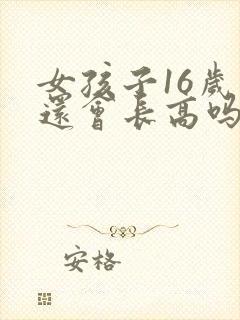 女孩子16歲
還會長高吗
安格